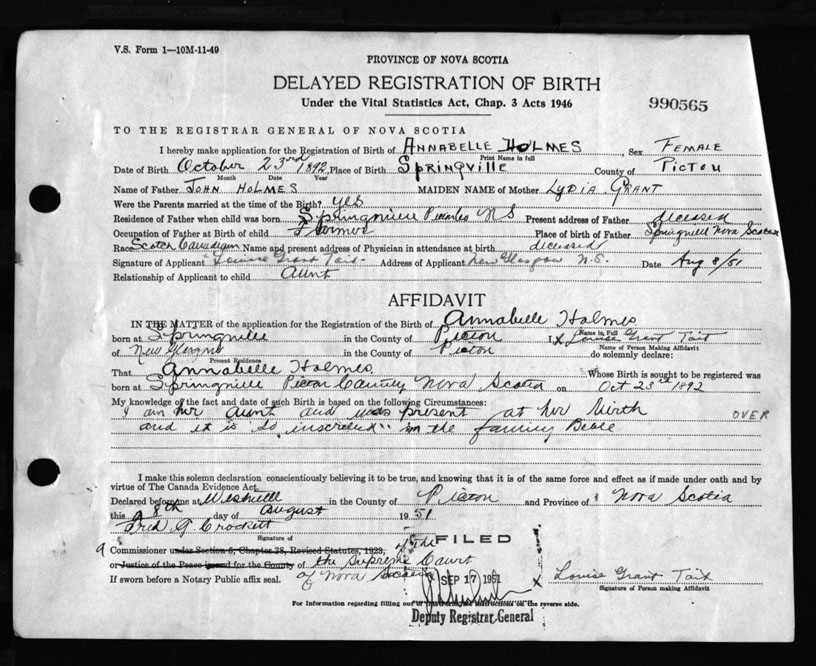 V.S. Form 1—10M-11-49
PROVINCE OF NOVA SCOTIA
DELAYED REGISTRATION OF BIRTH
Under the Vital Statistics Act, Chap. 3 Acts 1946
990565
TO THE REGISTRAR GENERAL OF NOVA SCOTIA
I hereby make application for the Registration of Birth of ANNABELLE HOLMES Sex FEMALE
Print Name in full
Date of Birth October 23rd 1892, Place of Birth SPRINGVILLE County of PICTOU
Month Date Year
Name of Father JOHN HOLMES MAIDEN NAME of Mother LYDIA GRANT
Were the Parents married at the time of the Birth? yes
Residence of Father when child was born Springville N S Present address of Father deceased
Occupation of Father at Birth of child Farmer Place of birth of Father Springville Nova Scotia
Race Scotch Canadian Name and present address of Physician in attendance at birth deceased
Signature of Applicant Louise Grant Tait Address of Applicant New Glasgow N.S. Date Aug 8/51
Relationship of Applicant to child Aunt
AFFIDAVIT
IN THE MATTER of the application for the Registration of Birth of Annabelle Holmes
Name in Full
born at Springville in the County of Pictou I, x Louise Grant Tait
Name of Person Making Affidavit
of New Glasgow in the County of Pictou do solemnly declare:
Present Residence
That Annabelle Holmes Whose Birth is sought to be registered was
born at Springville Pictou County Nova Scotia on Oct 23rd 1892
My knowledge of the fact and date of such Birth is based on the following Circumstances:
I am her Aunt and was present at her birth OVER
and it is so inscribed in the family Bible
I make this solemn declaration conscientiously believing it to be true, and knowing that it is of the same force and effect as if made under oath and by
virtue of The Canada Evidence Act.
Declared before me at Westville in the County of Pictou and Province of Nova Scotia
this 8th day of August 1951
Fred. G. Crockett
Signature of
a Commissioner under Section 5, Chapter 38, Revised Statutes, 1923, of the
or Justice of the Peace in and for the County of the Supreme Court
of Nova Scotia
If sworn before a Notary Public affix seal.
FILED
SEP 17 1951
x Louise Grant Tait
Signature of Person making Affidavit
For Information regarding filling out of this form see instructions on the reverse side.
Deputy Registrar General